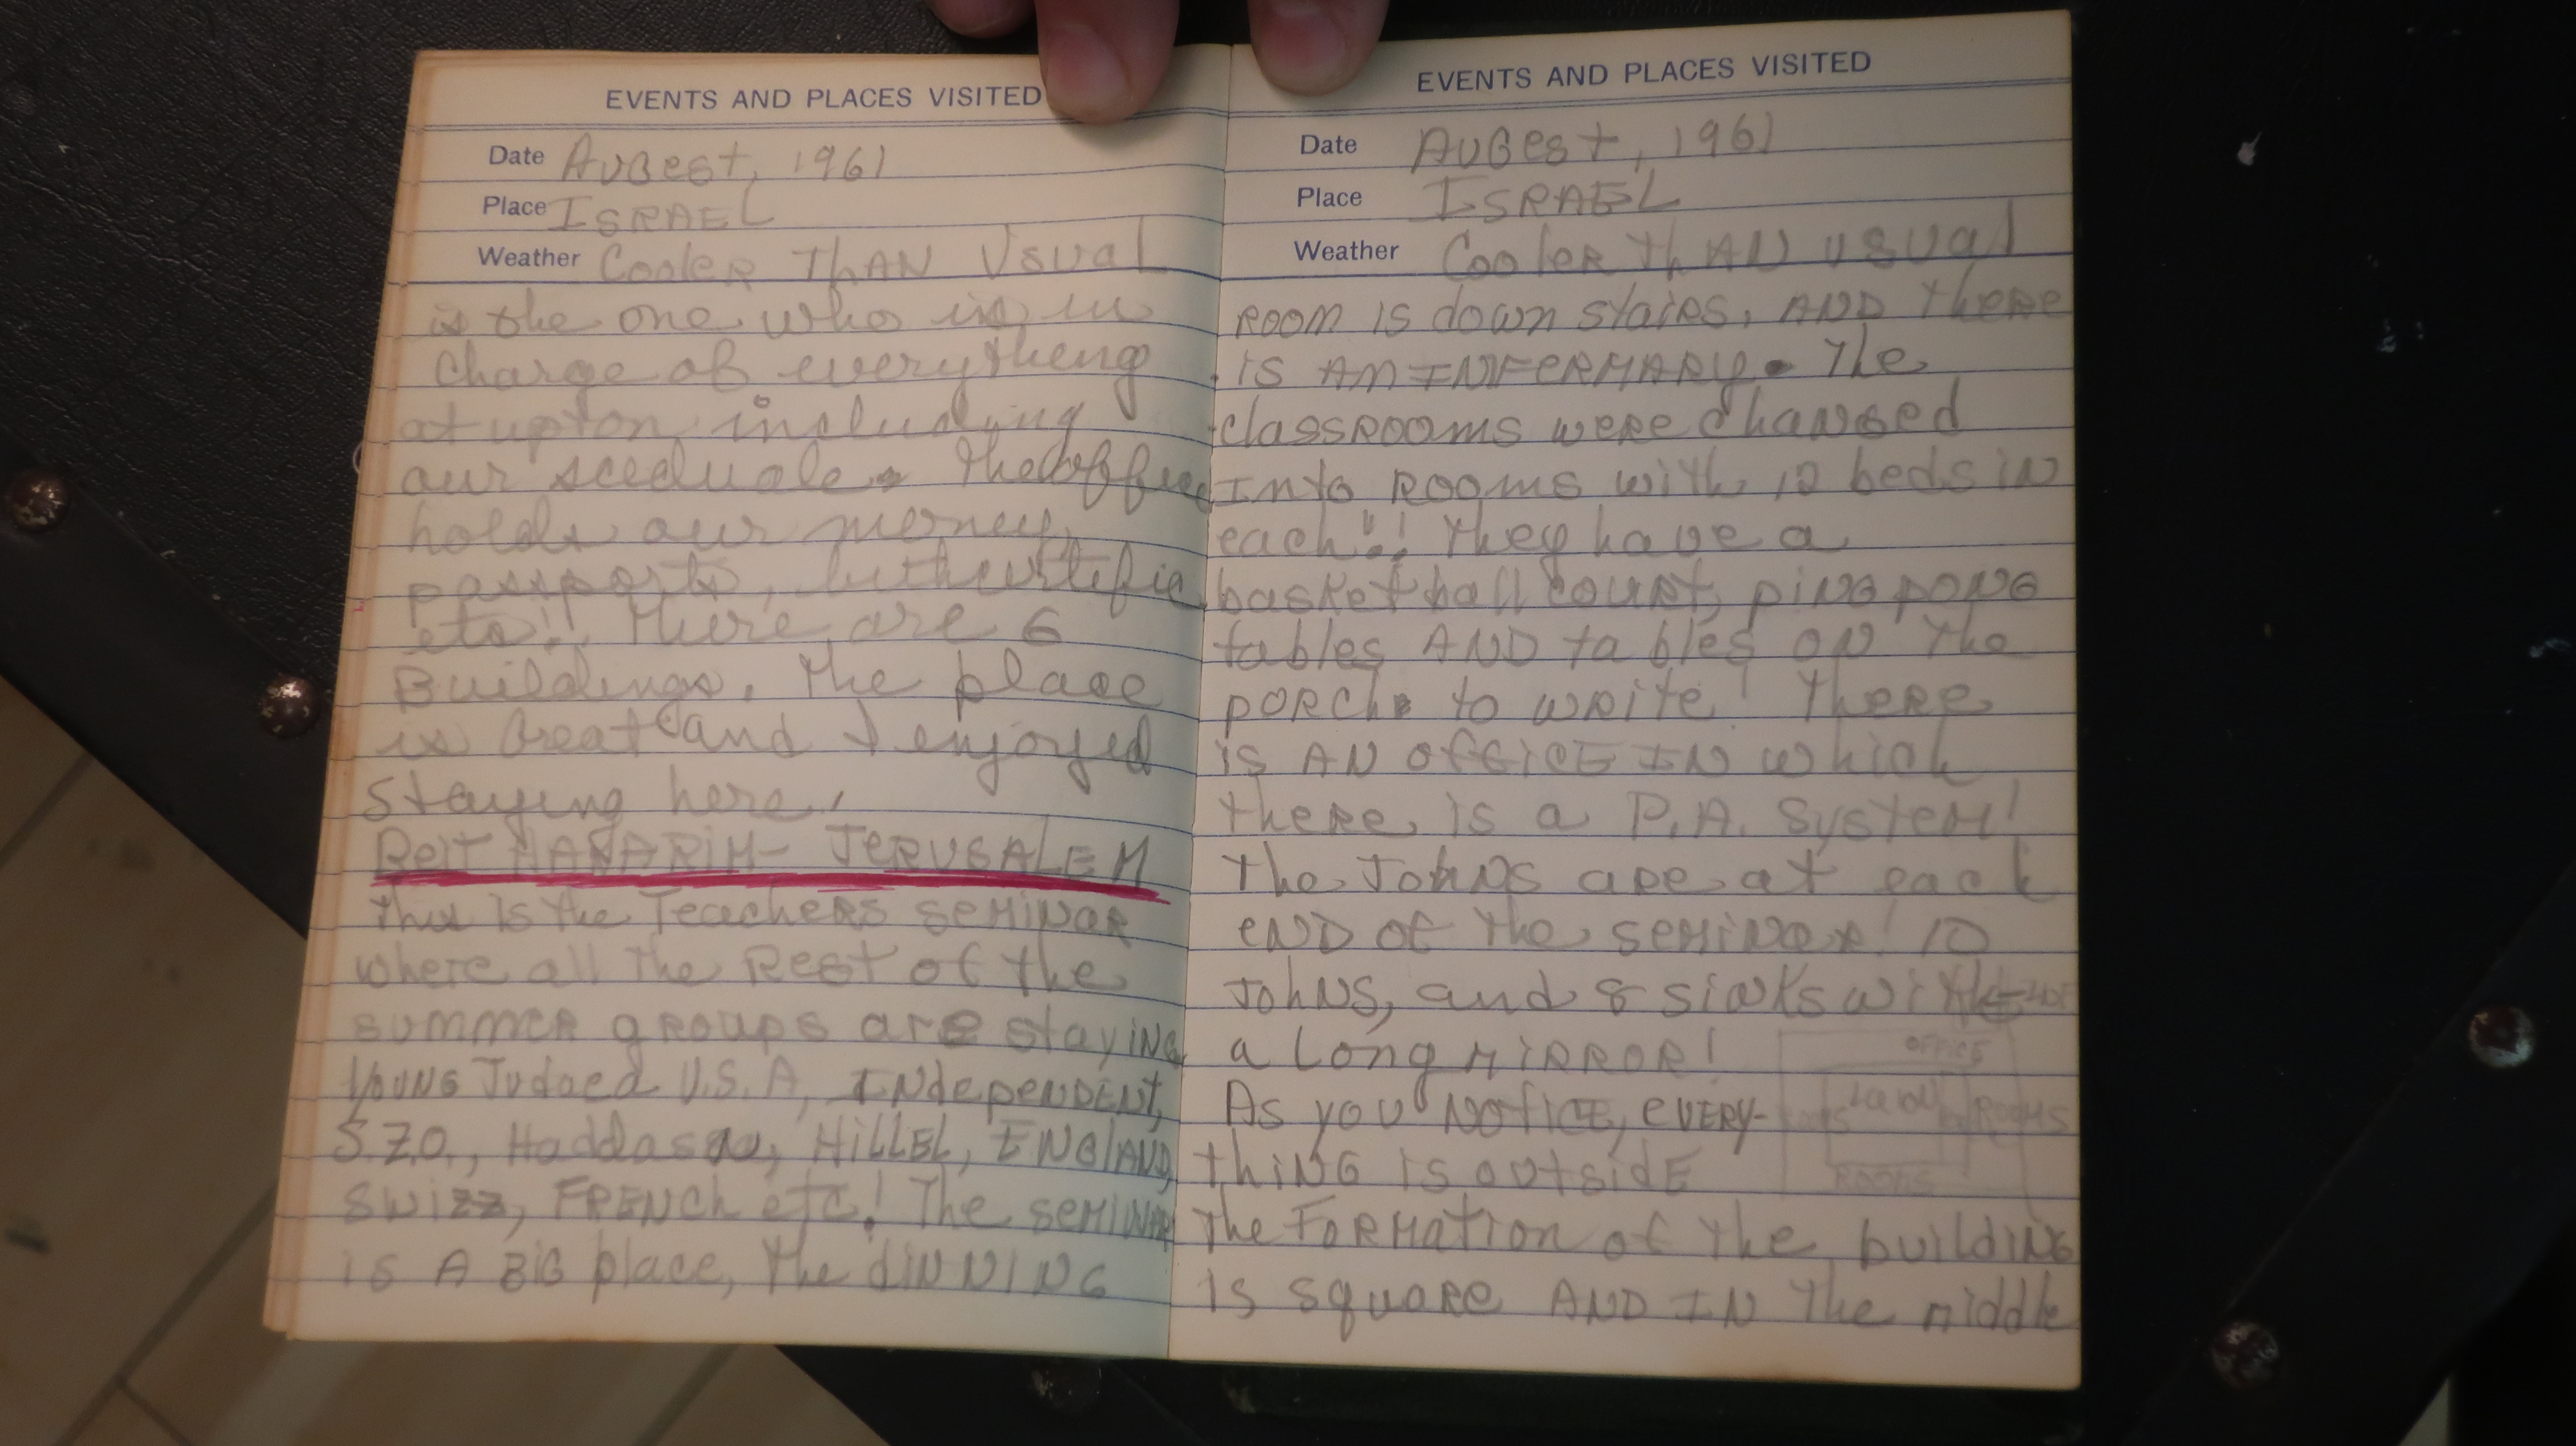 EVENTS AND PLACES VISITED
Date Augest, 1961
Place ISRAEL
Weather Cooler THAN Usual
is the one who is in
charge of everything
at upton including
our sceduale. The office
holds our money,
passports,
etc!! There are 6
Buildings. The place
is Great and I enjoyed
staying here.
Beit HANARIM- JERUSALEM
This is the Teachers SEMINAR
where all the Rest of the
summer groups are stayING
YOUNG Judaea U.S.A, INdepeNDENT,
S.Z.O., Haddasah, HiLLEL, ENGlAND,
Swizz, FRENCh etc! The SEMINAR
is A BIG place, the dINNING
EVENTS AND PLACES VISITED
Date AuGest, 1961
Place ISRAEL
Weather Cooler ThAN usual
ROOM is down staiRs, AND theRe
is AM INFERMARY. The
classROOMs weRe chaNGed
INto ROOMS with 12 beds IN
each!! they have a
basketball couRt, piNG poNG
tables AND tables ON the
PORCh to wRite! TheRe
is AN OffiCE IN which
theRe is a P.A. System!
The JohNs aRe at each
eND of the seMiNaR! 10
JohNS, and 8 siNKs with
a LoNg MIRROR!
As you NOtiCE, eVERY-
thING is outsidE
the FORMatioN of the buildiNG
is squaRe AND IN the middle
OFFICE
ROOMS
ROOMS